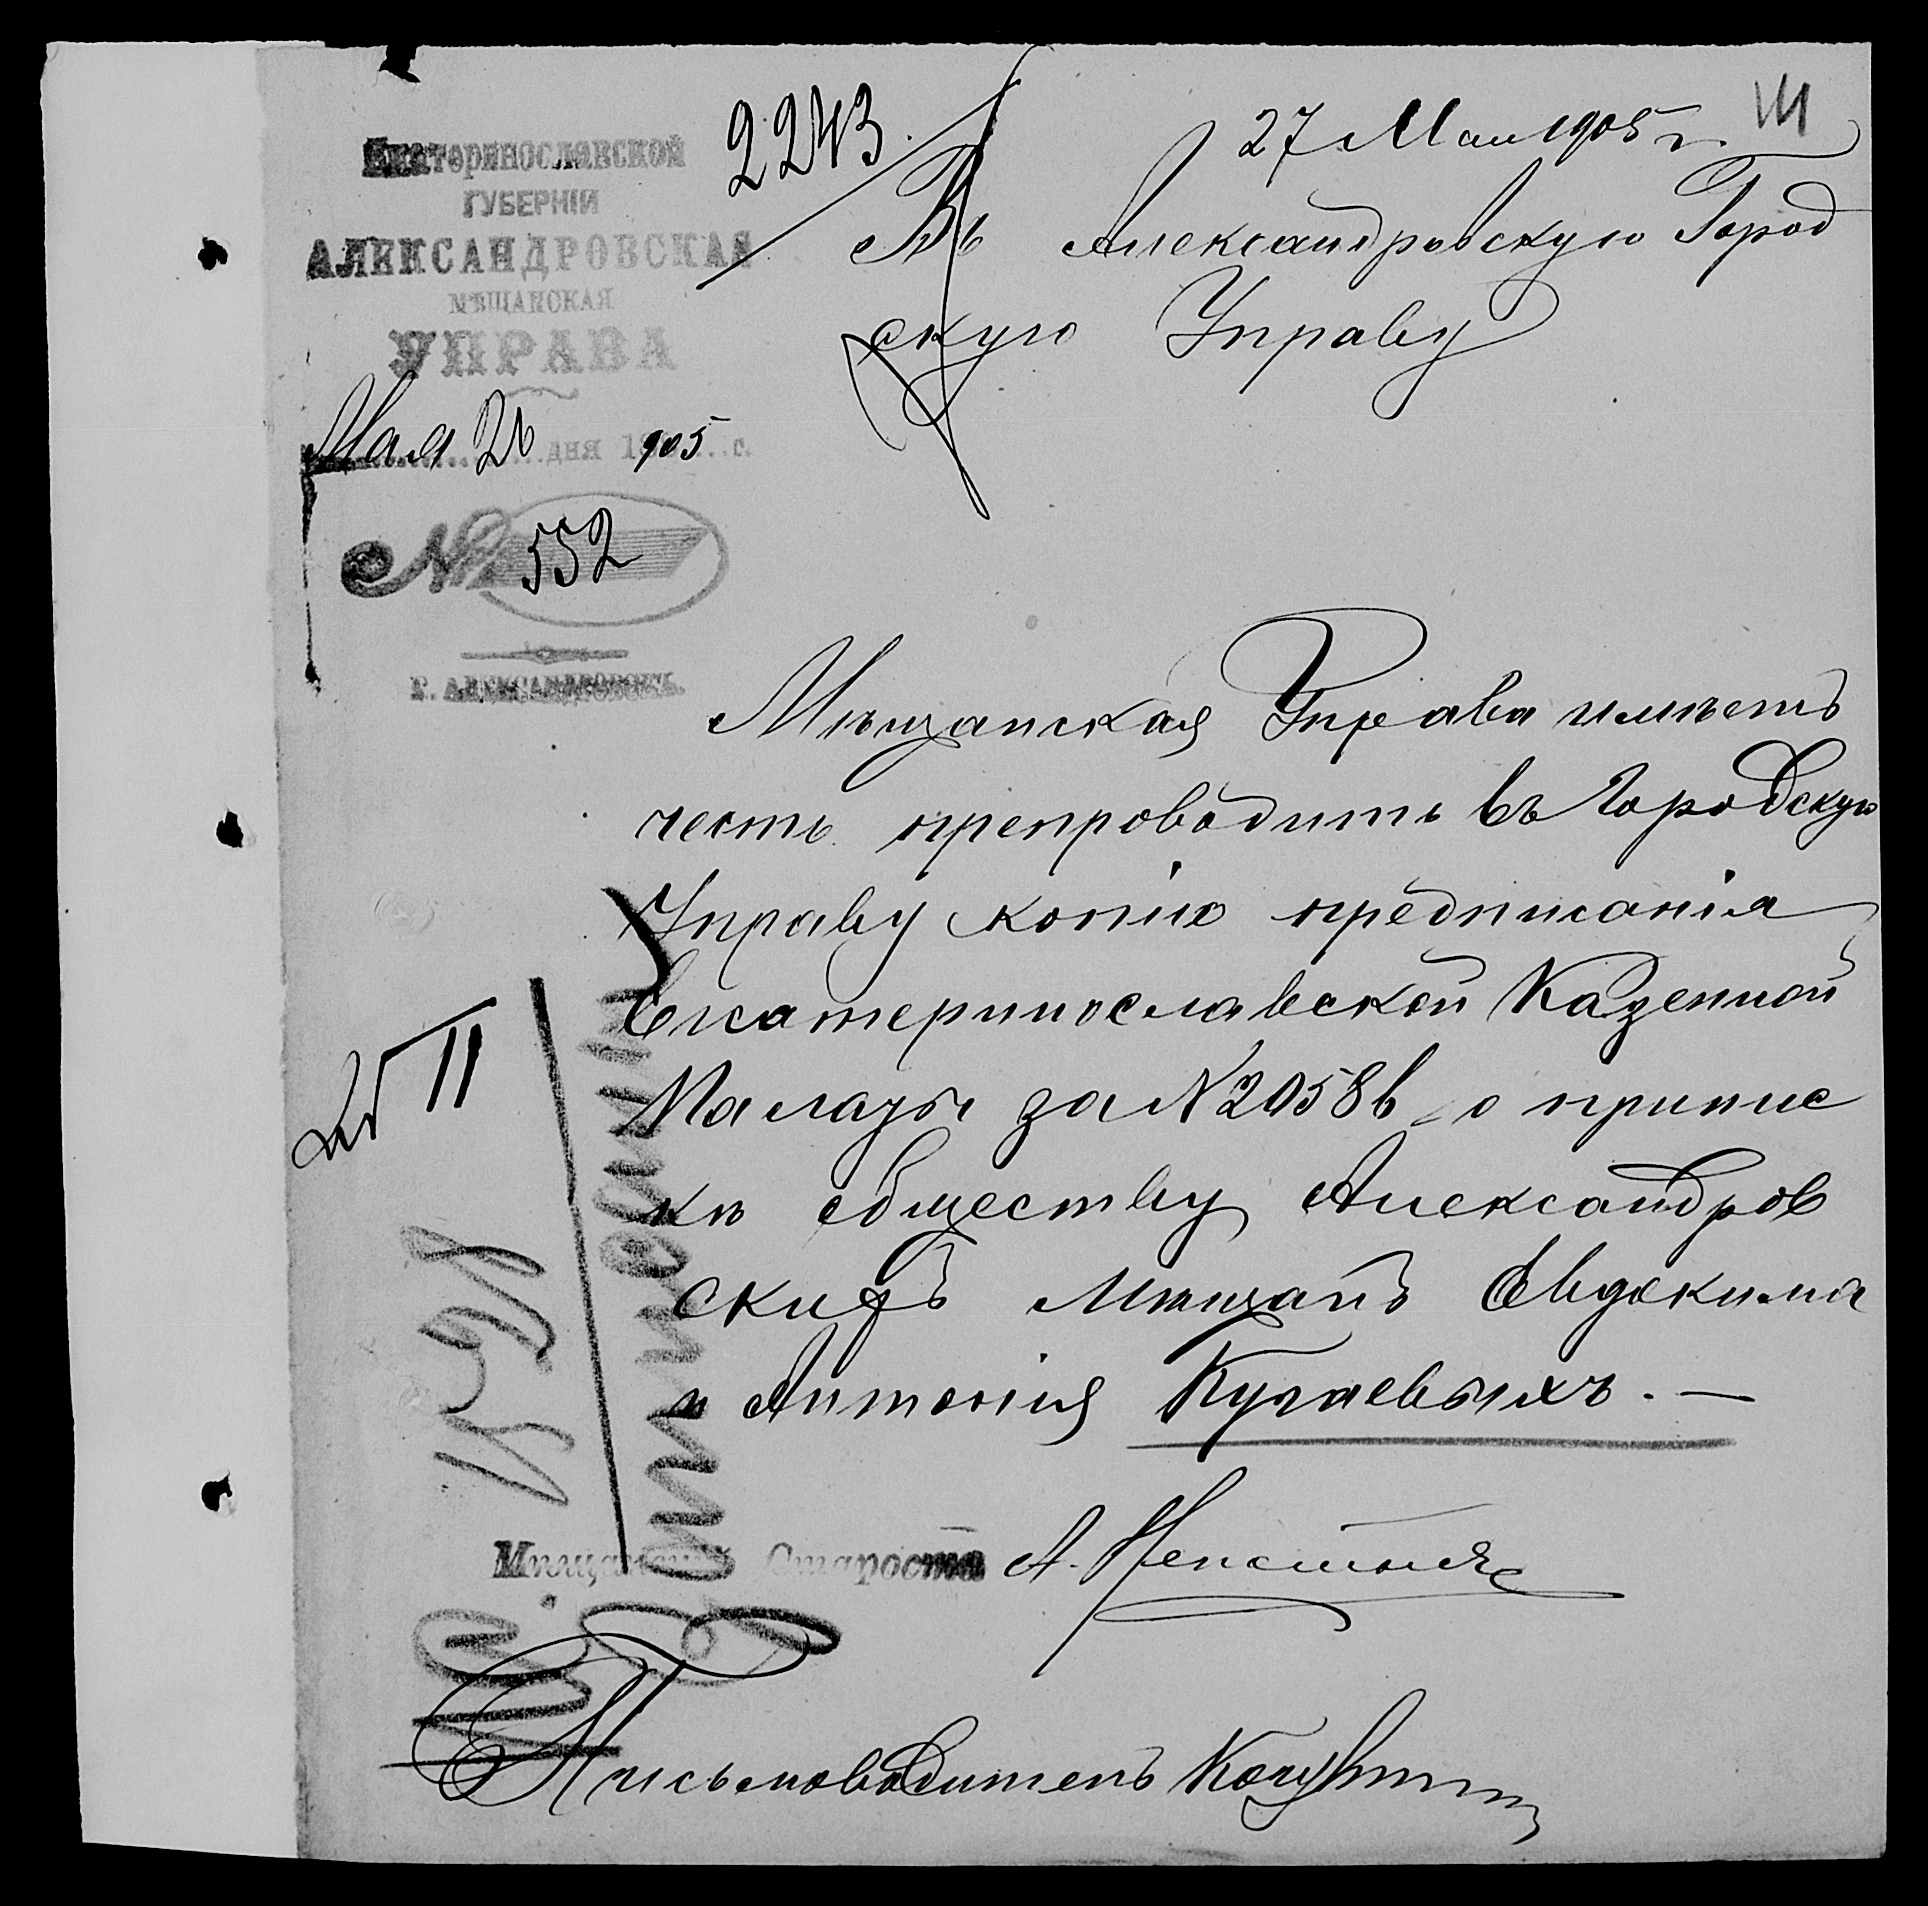 2243.
27 Мая 1905 г.
Екатеринославской
ГУБЕРНІИ
АЛЕКСАНДРОВСКАЯ
МѢЩАНСКАЯ
УПРАВА
Мая 26 дня 1905 г.
№ 552
Г. АЛЕКСАНДРОВСКЪ.
Въ Александровскую Город
скую Управу
Мѣщанская Управа имѣетъ
честь препроводить въ Городскую
Управу копію предписанія
Екатеринославской Казенной
Палаты за № 20586 о припис
кѣ обществу Александров
скихъ мѣщанъ Евдокима
и Антонія
II
Мѣщанскій Староста А.
Письмоводитель